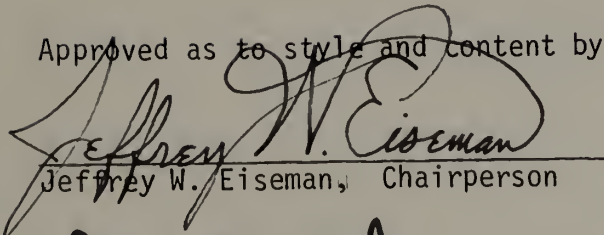 Approved as to style and content by
Jeffrey W. Eiseman
Jeffrey W. Eiseman, Chairperson